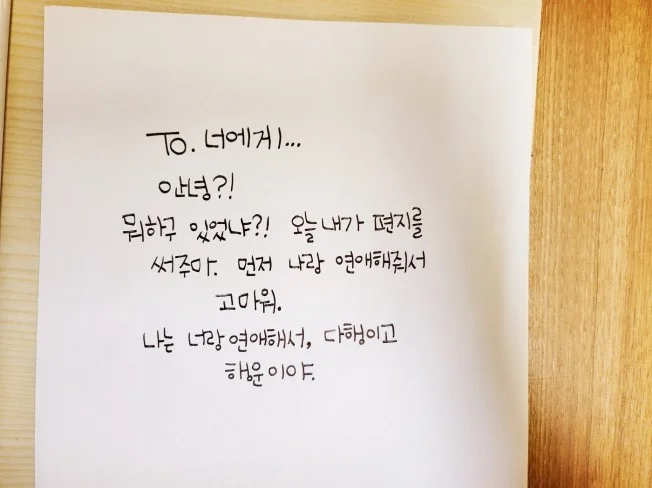 To. 너에게...
안녕?!
뭐하구 있었냐?! 오늘 내가 편지를
써주마. 먼저 나랑 연애해줘서
고마워.
나는 너랑 연애해서, 다행이고
행운이야.